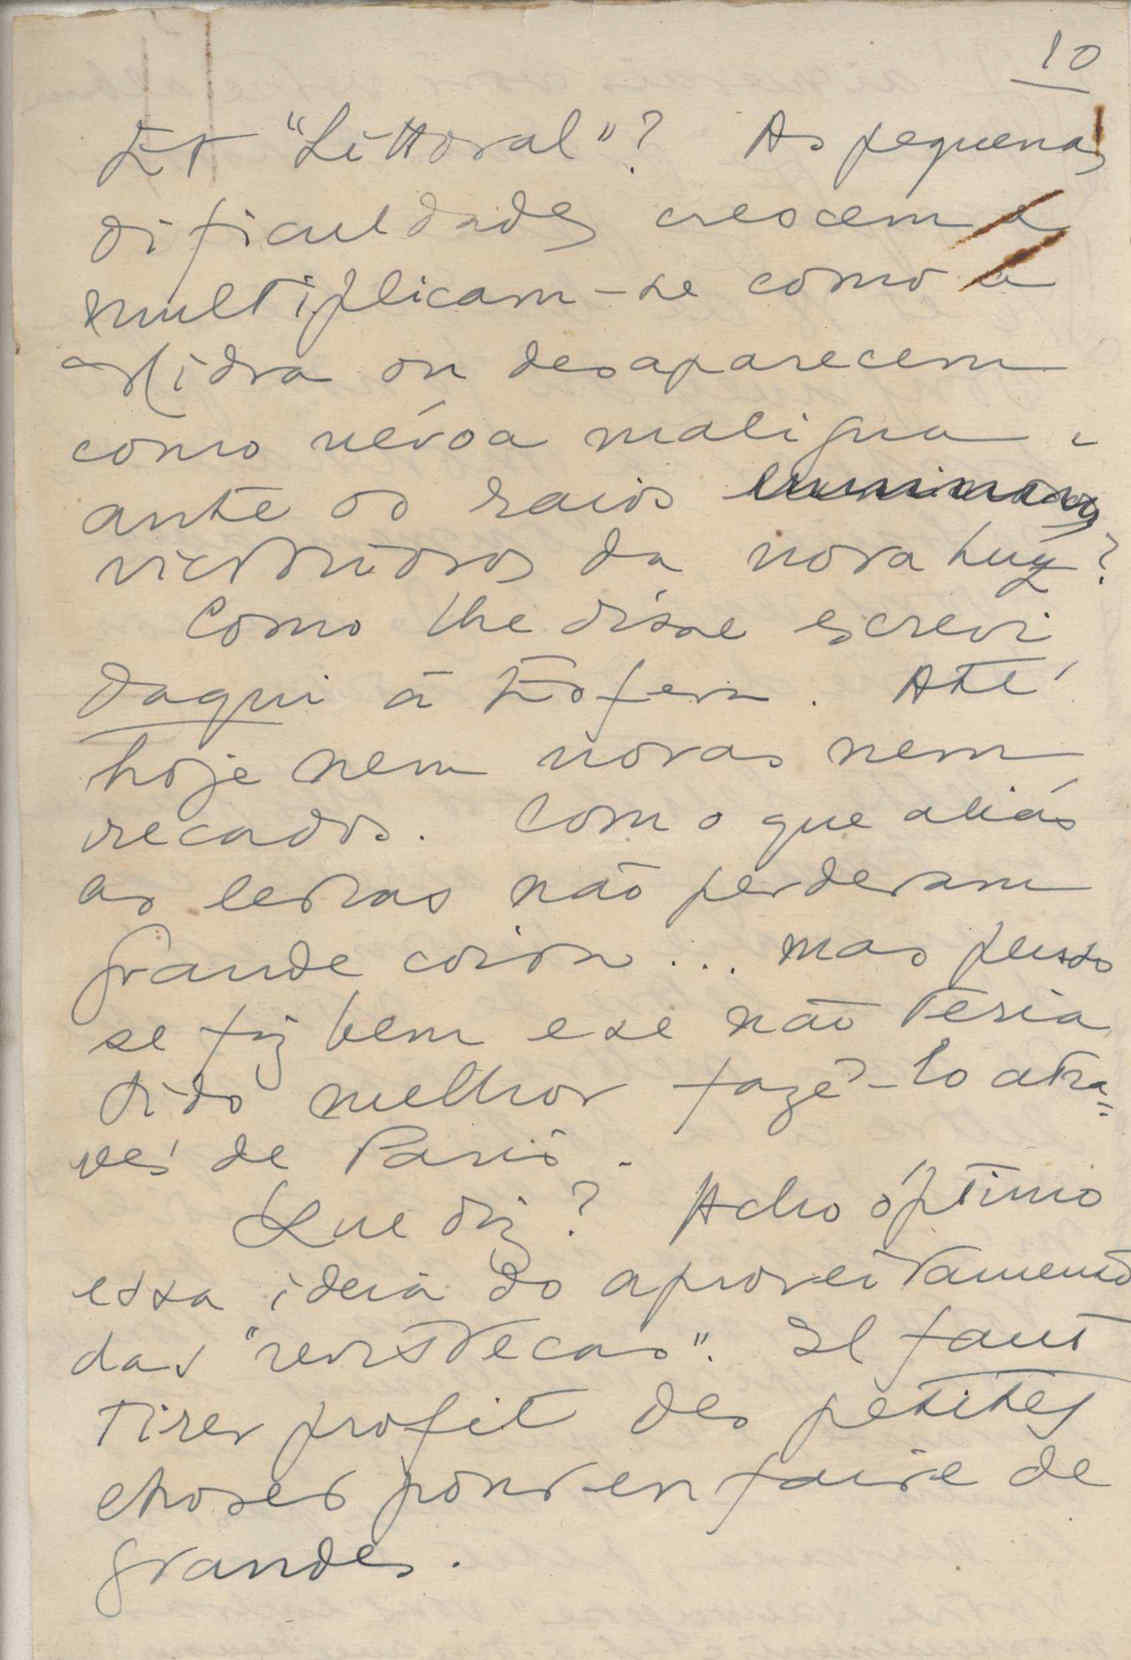 10
Et "Littoral"? As pequenas
dificuldades crescem e
multiplicam-se como a
Hidra ou desaparecem
como névoa maligna
ante os raios
victoriosos da nova luz?
Como lhe disse escrevi
daqui à Esfera. Até
hoje nem novas nem
recados. Com o que aliás
as letras não perderam
grande coisa... mas penso
se fiz bem e se não teria
sido melhor fazê-lo atra=
vés de Paris.
Que diz? Acho óptimo
essa ideia do aproveitamento
das "revistecas". Il faut
tirer profit des petites
choses pour en faire de
grandes.